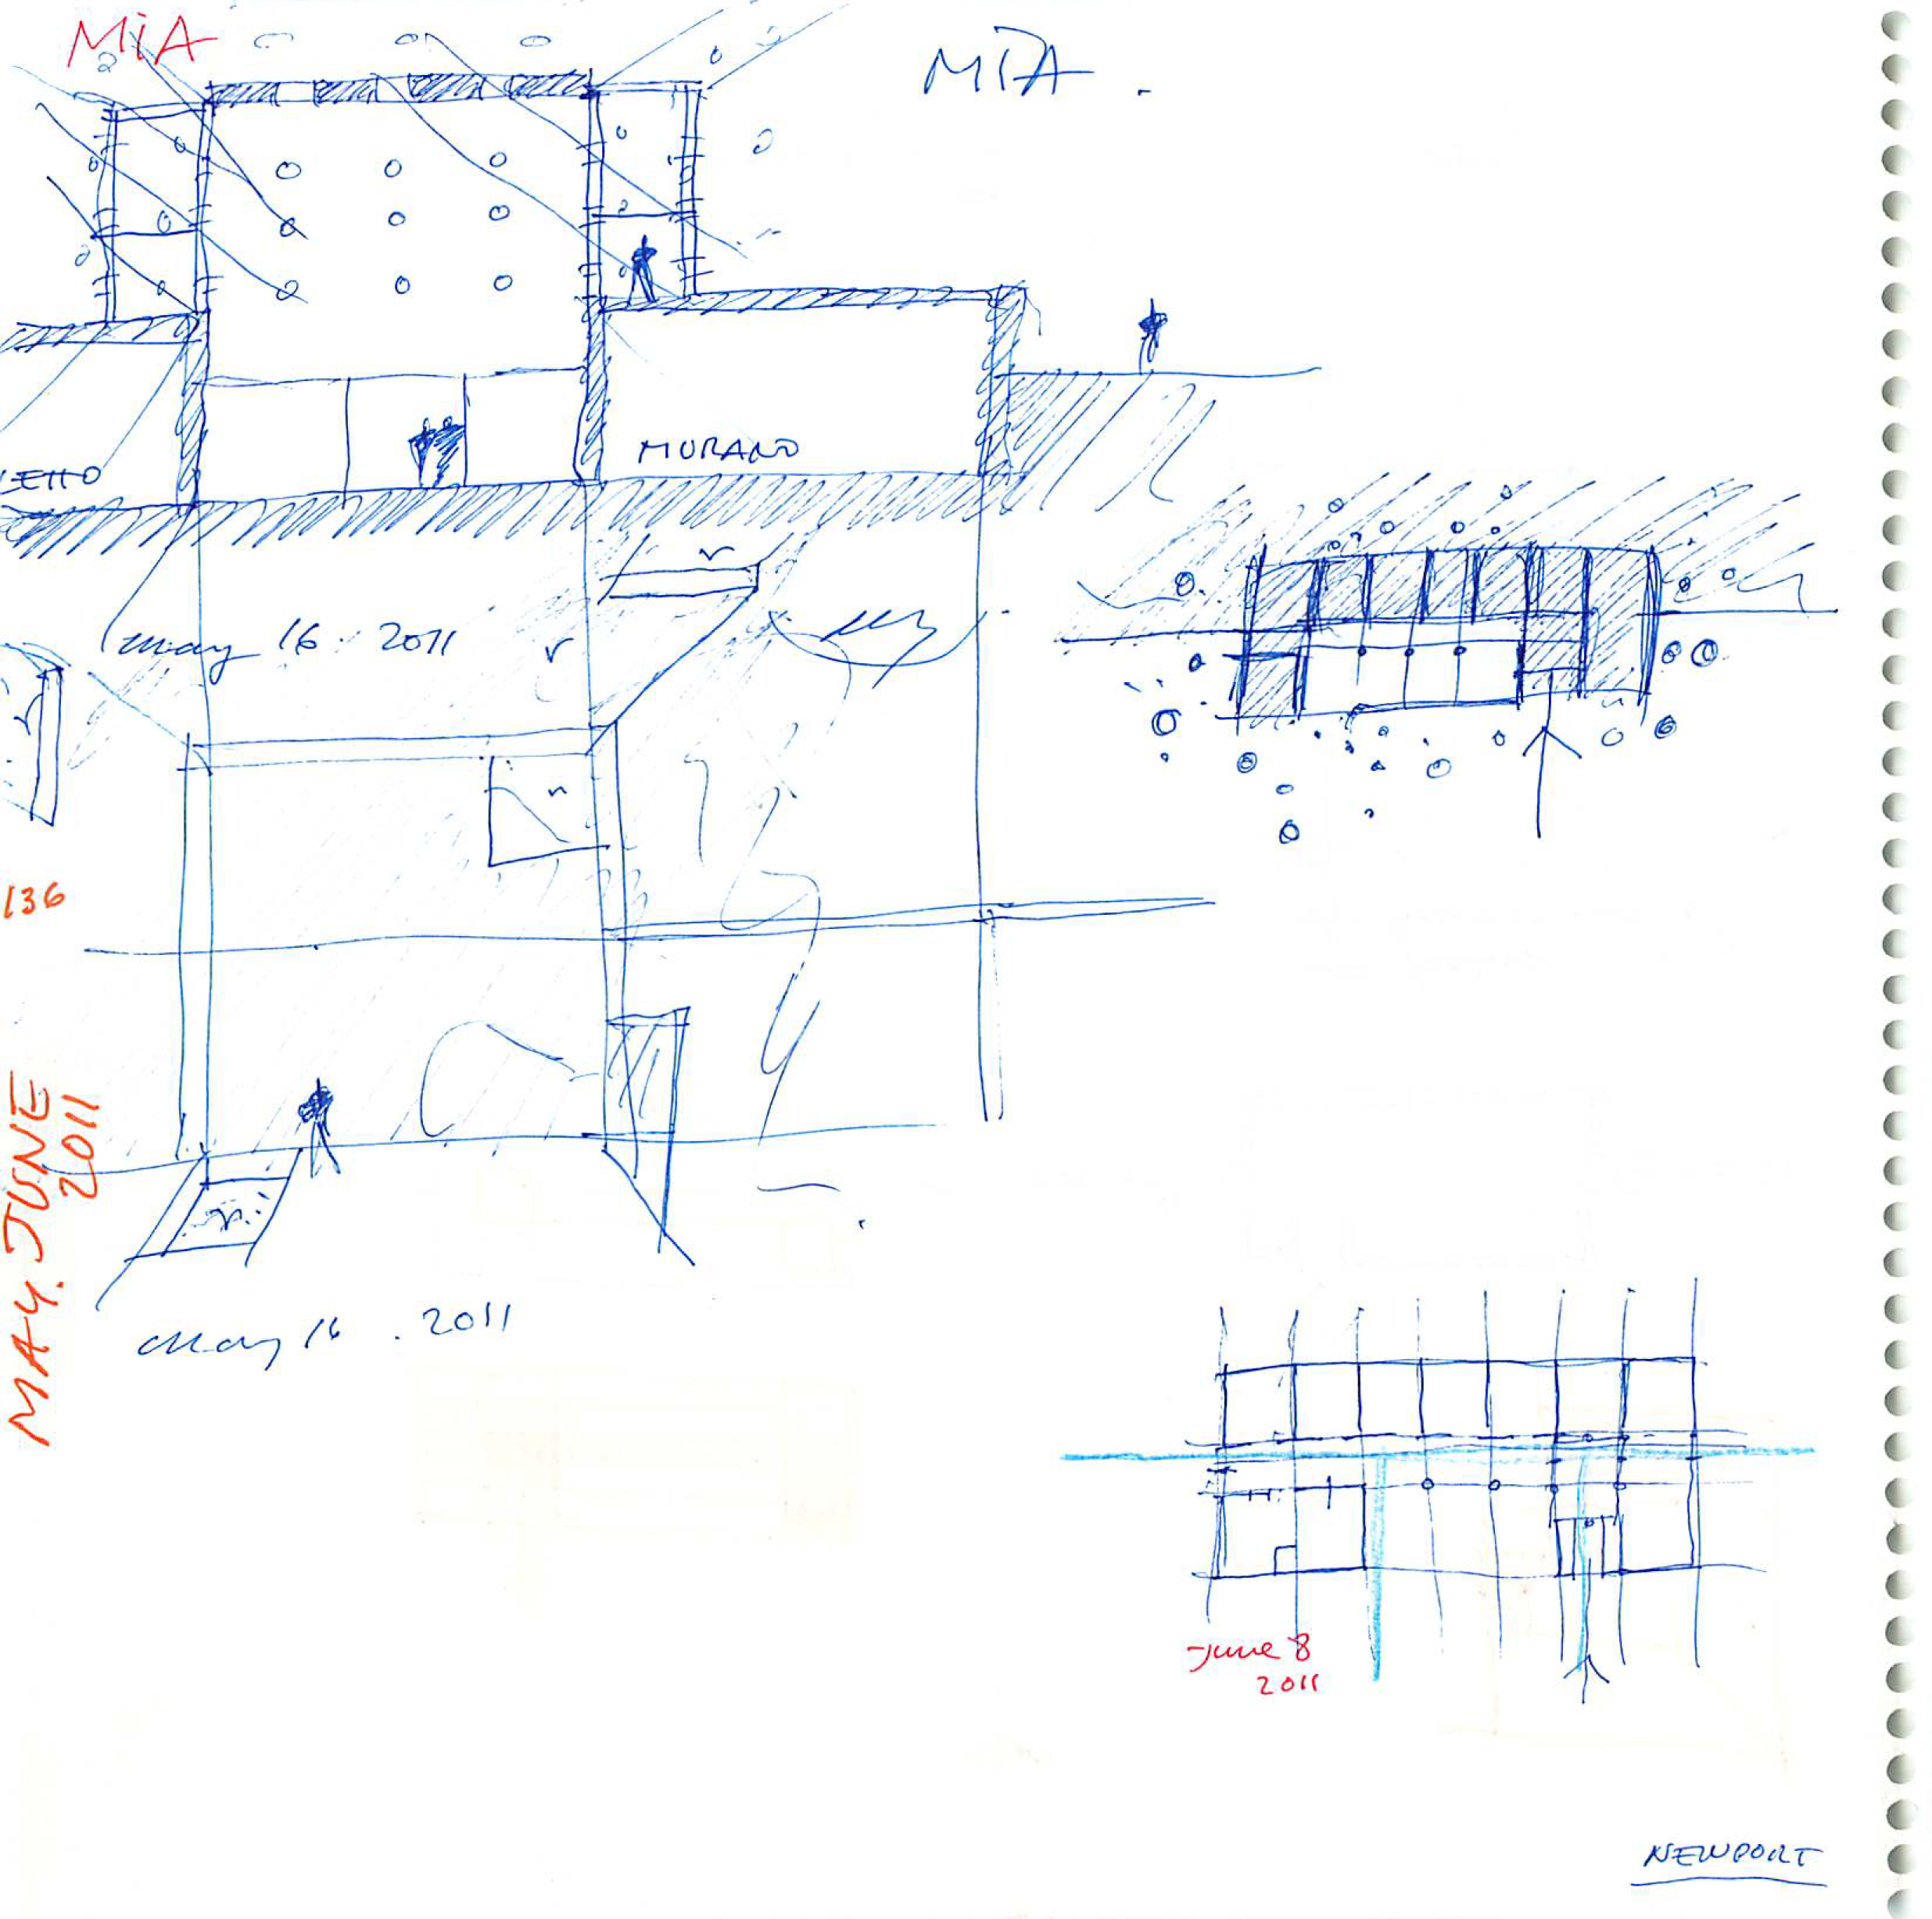 MIA
MIA.
MURANO
LETTO
may 16. 2011
136
MAY. JUNE
2011
may 16. 2011
June 8
2011
NEWPORT